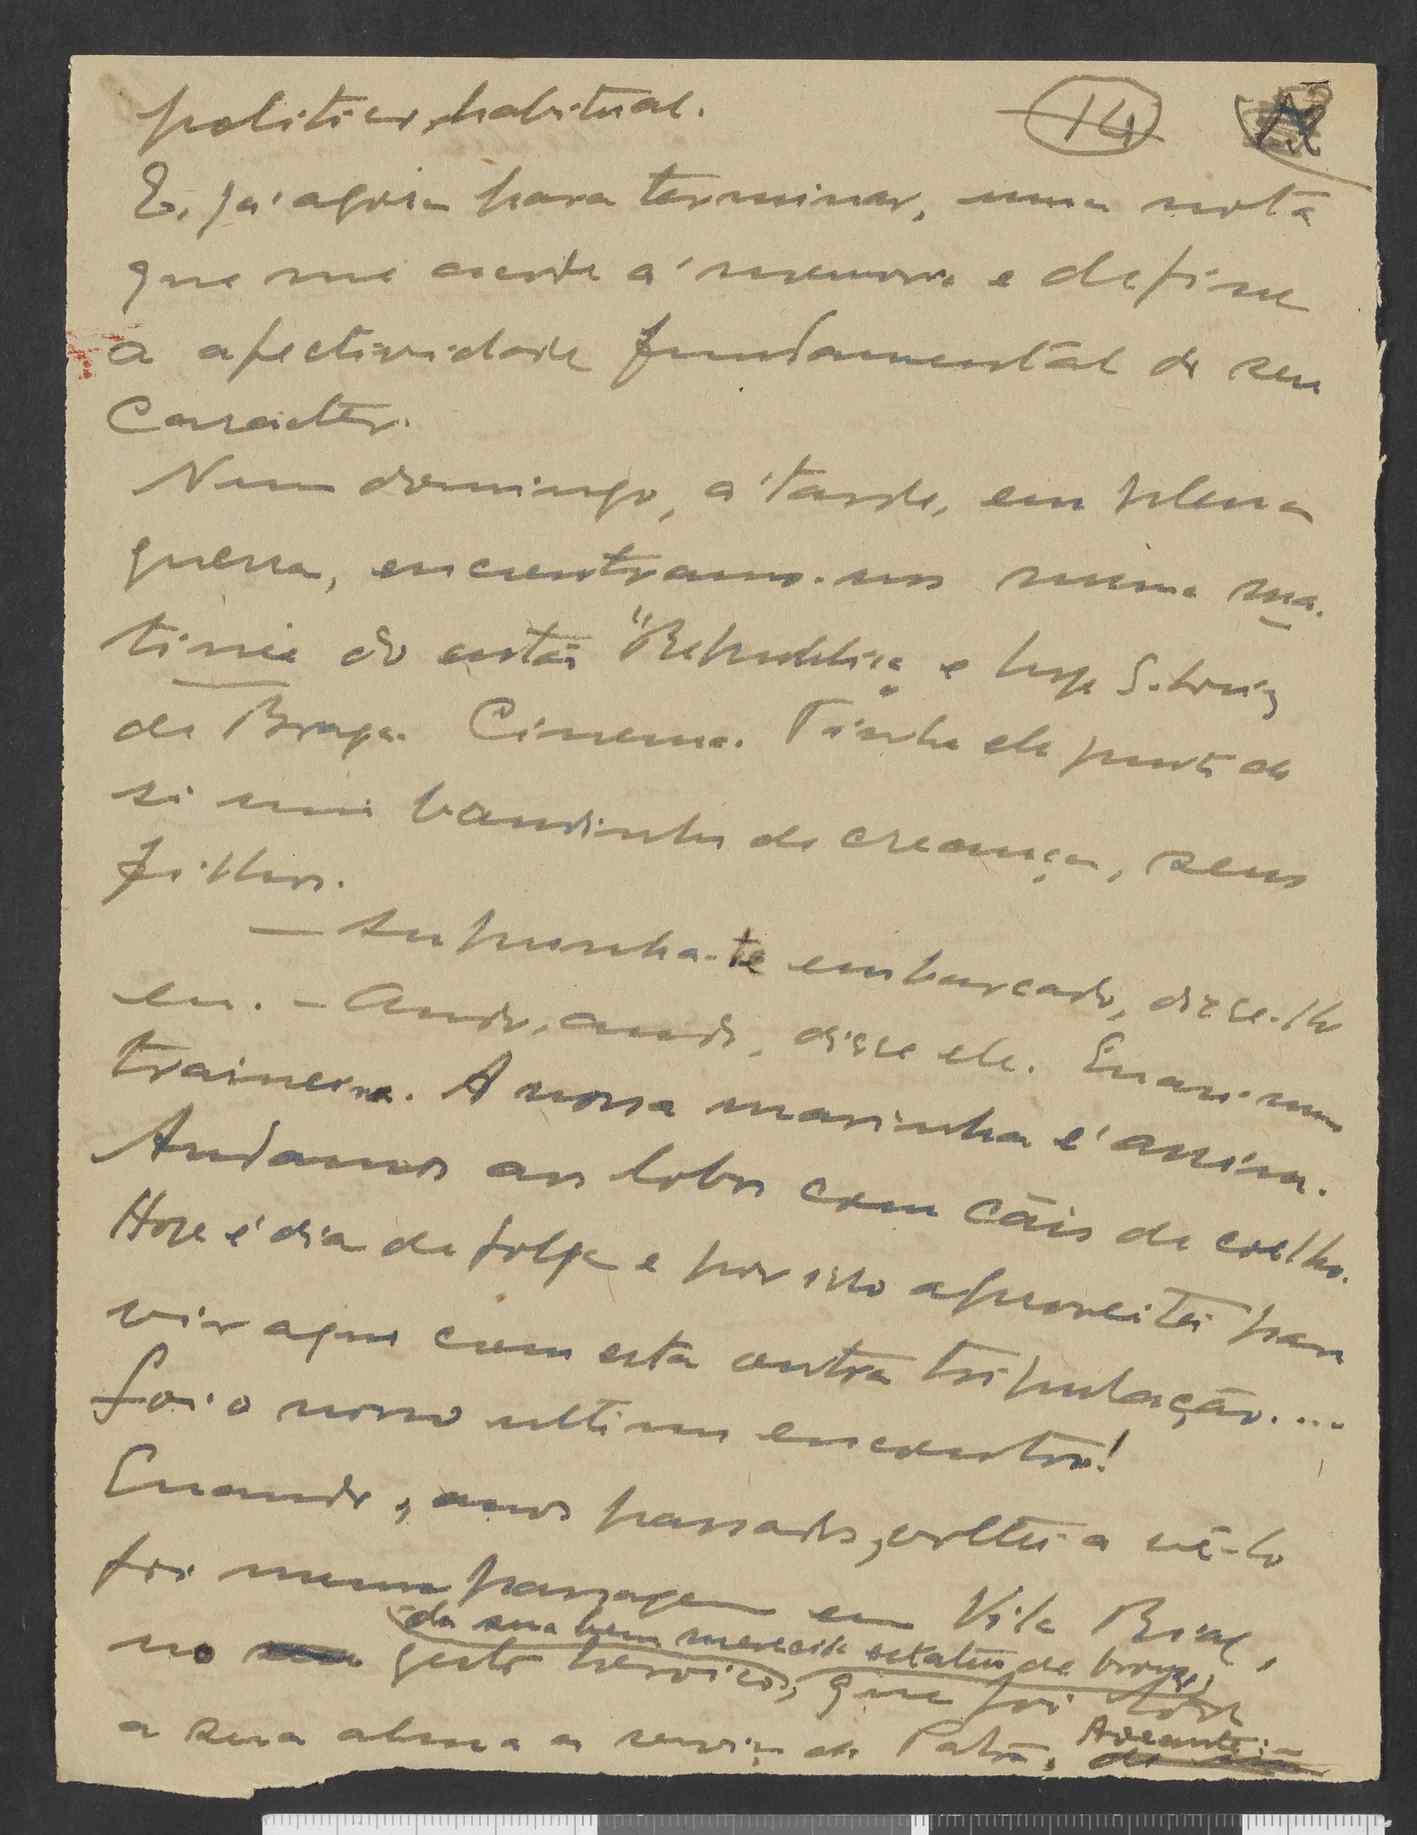 politico, habitual.
14
E, já agora para terminar, uma nota
que me acode á memoria e define
a afectividade fundamental do seu
Caracter.
Num domingo, á tarde, em plena
guerra, encontramo-nos numa ma-
tinée do então "Republica" e hoje S. Luiz
de Braga. Cinema. Tinha ele junto de
si um bandinho de creança, seus
filhos.
— Supunha-te embarcado, disse-lhe
eu. — Ando, ando, disse ele. Enar-num
traineira. A nossa marinha é assim.
Andamos aos lobos com cãis de coelho.
Hoje é dia de folga e por isso aproveitei para
vir aqui com esta outra tripulação....
Foi o nosso ultimo encontro!
Quando, anos passados, voltei a vê-lo
foi numa passagem em Vila Real,
da sua bem merecida estatua de bronze,
no gesto heroico, que foi toda
a sua alma ao serviço da Patria,